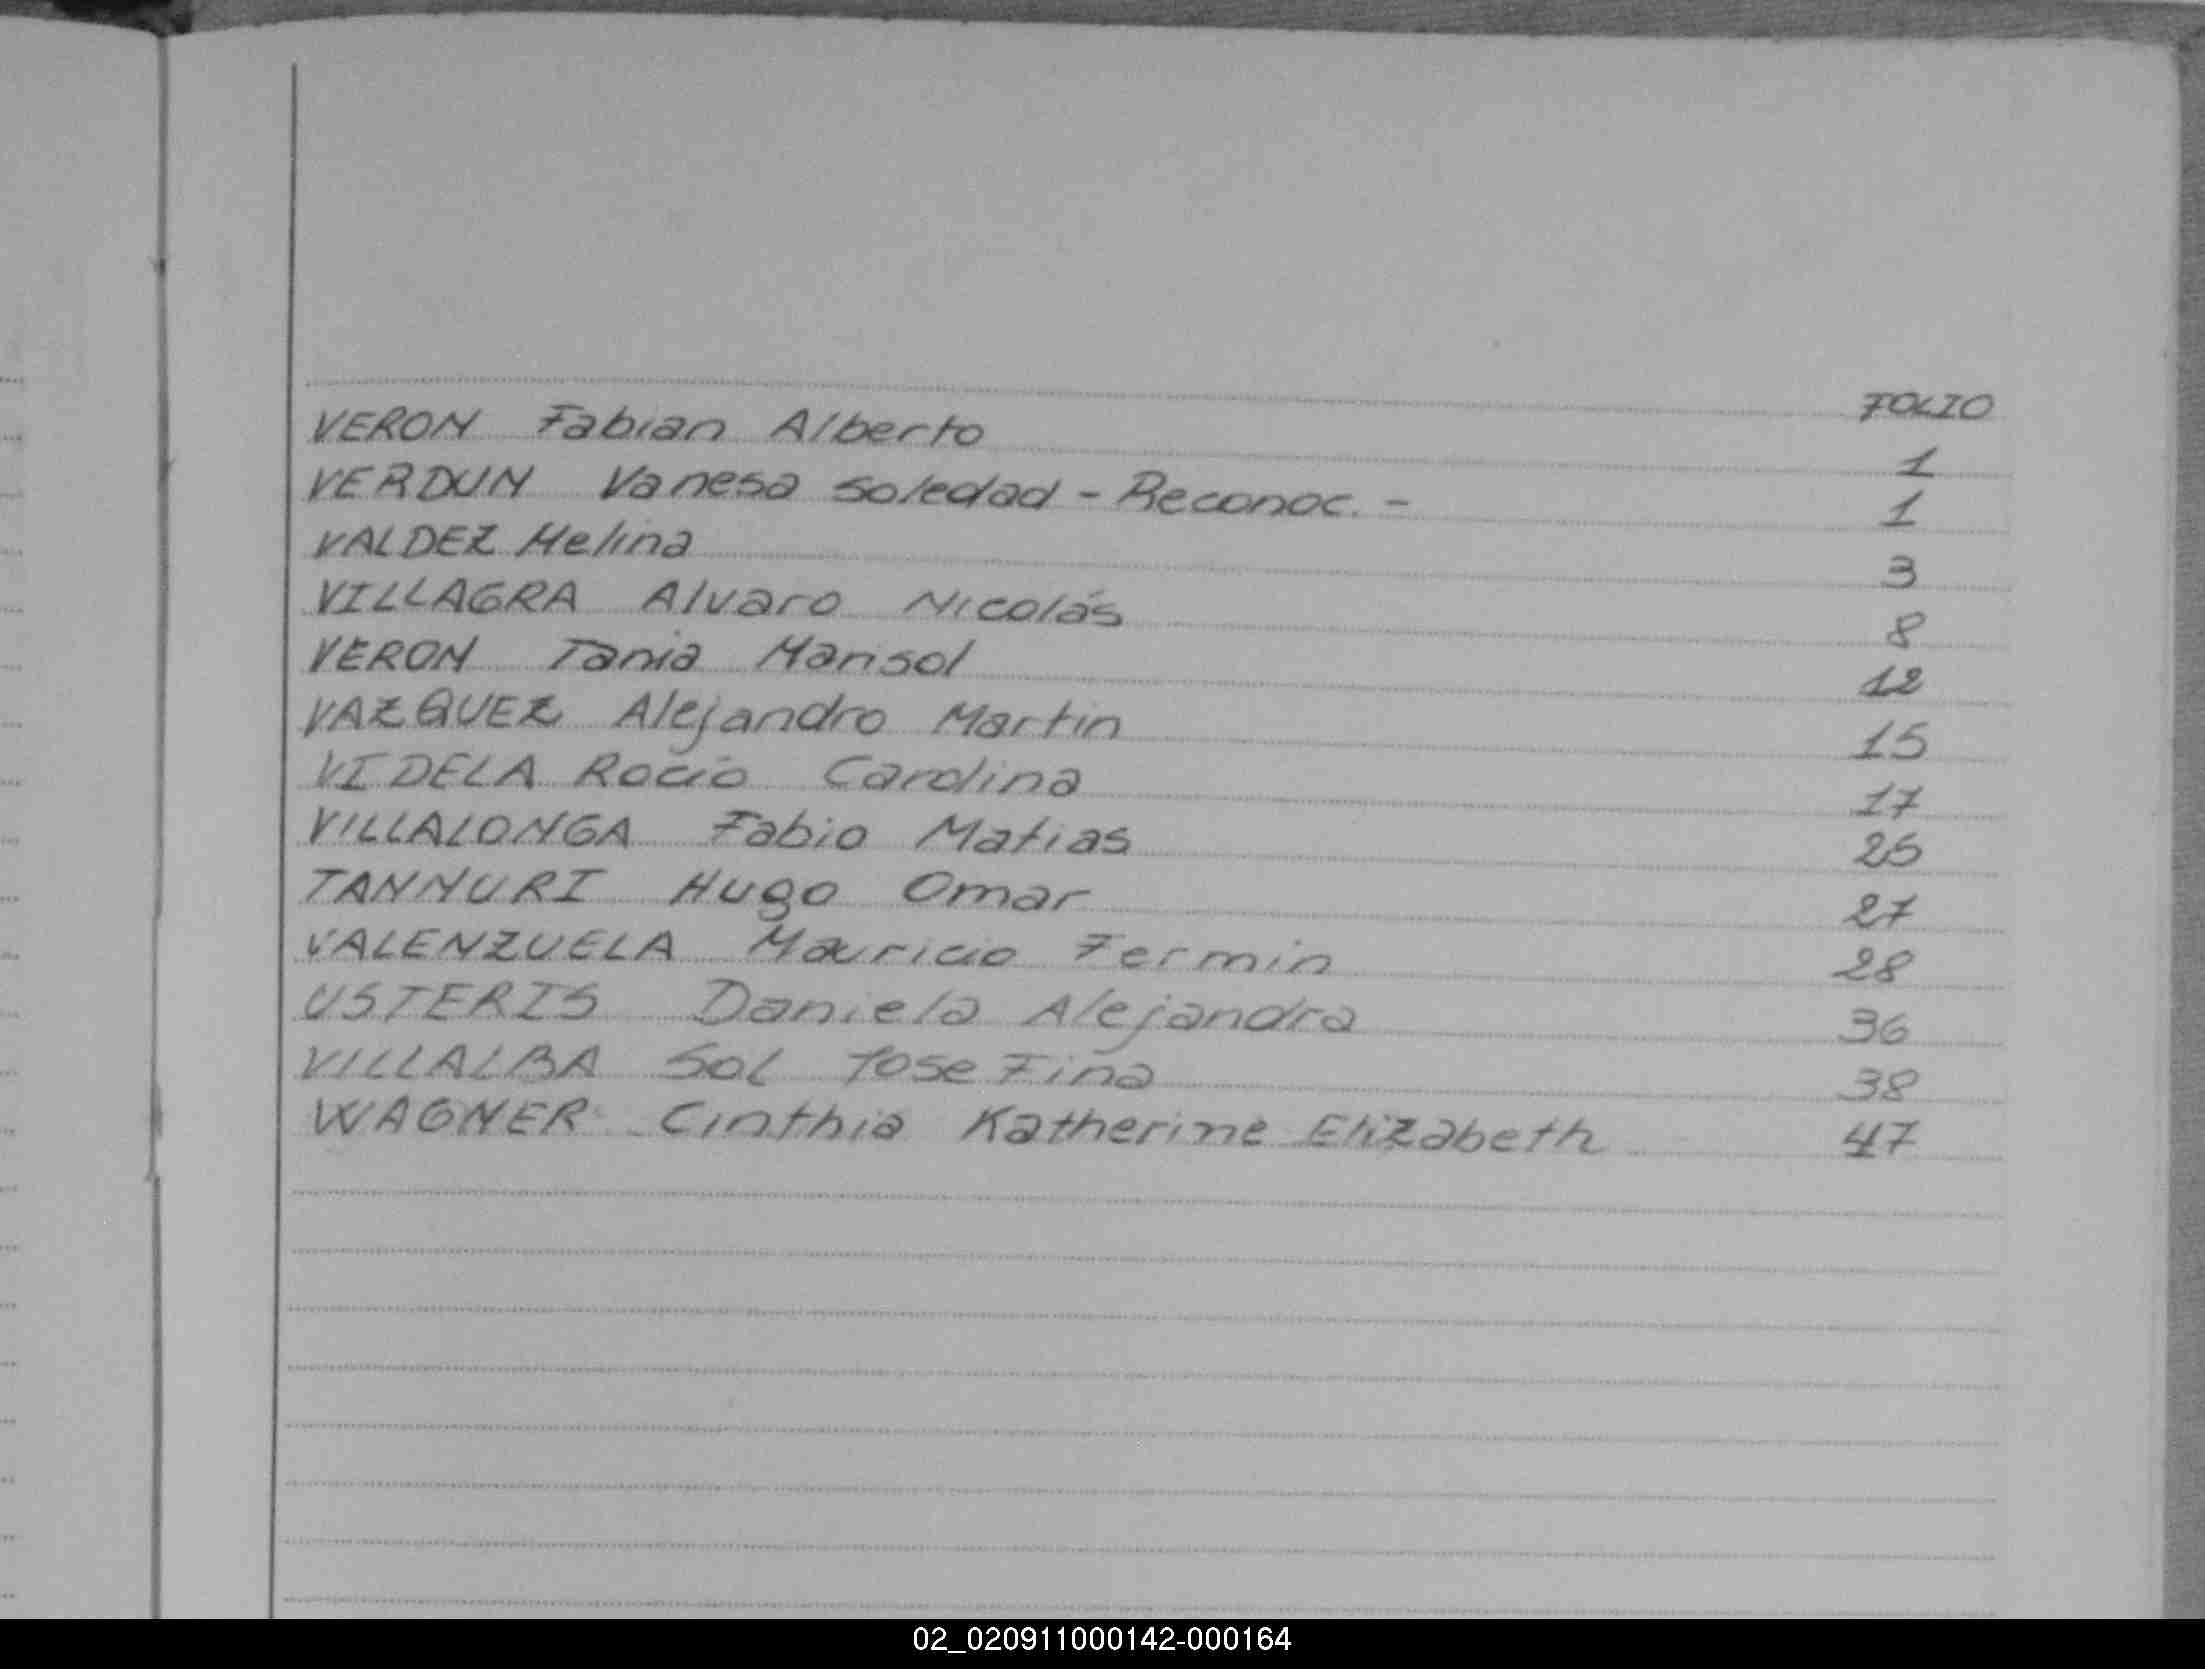 FOLIO
VERON Fabian Alberto 1
VERDUN Vanesa Soledad - Reconoc. - 1
VALDEZ Melina 3
VILLAGRA Alvaro Nicolás 8
VERON Tania Marisol 12
VAZQUEZ Alejandro Martin 15
VIDELA Rocio Carolina 17
VILLALONGA Fabio Matias 25
TANNURI Hugo Omar 27
VALENZUELA Mauricio Fermin 28
USTERIS Daniela Alejandra 36
VILLALBA Sol Josefina 38
WAGNER Cinthia Katherine Elizabeth 47
02_020911000142-000164